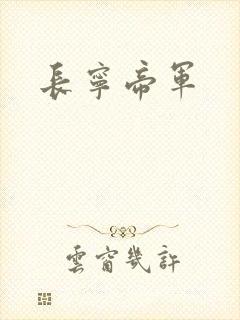 長寧帝軍
雲窗幾許